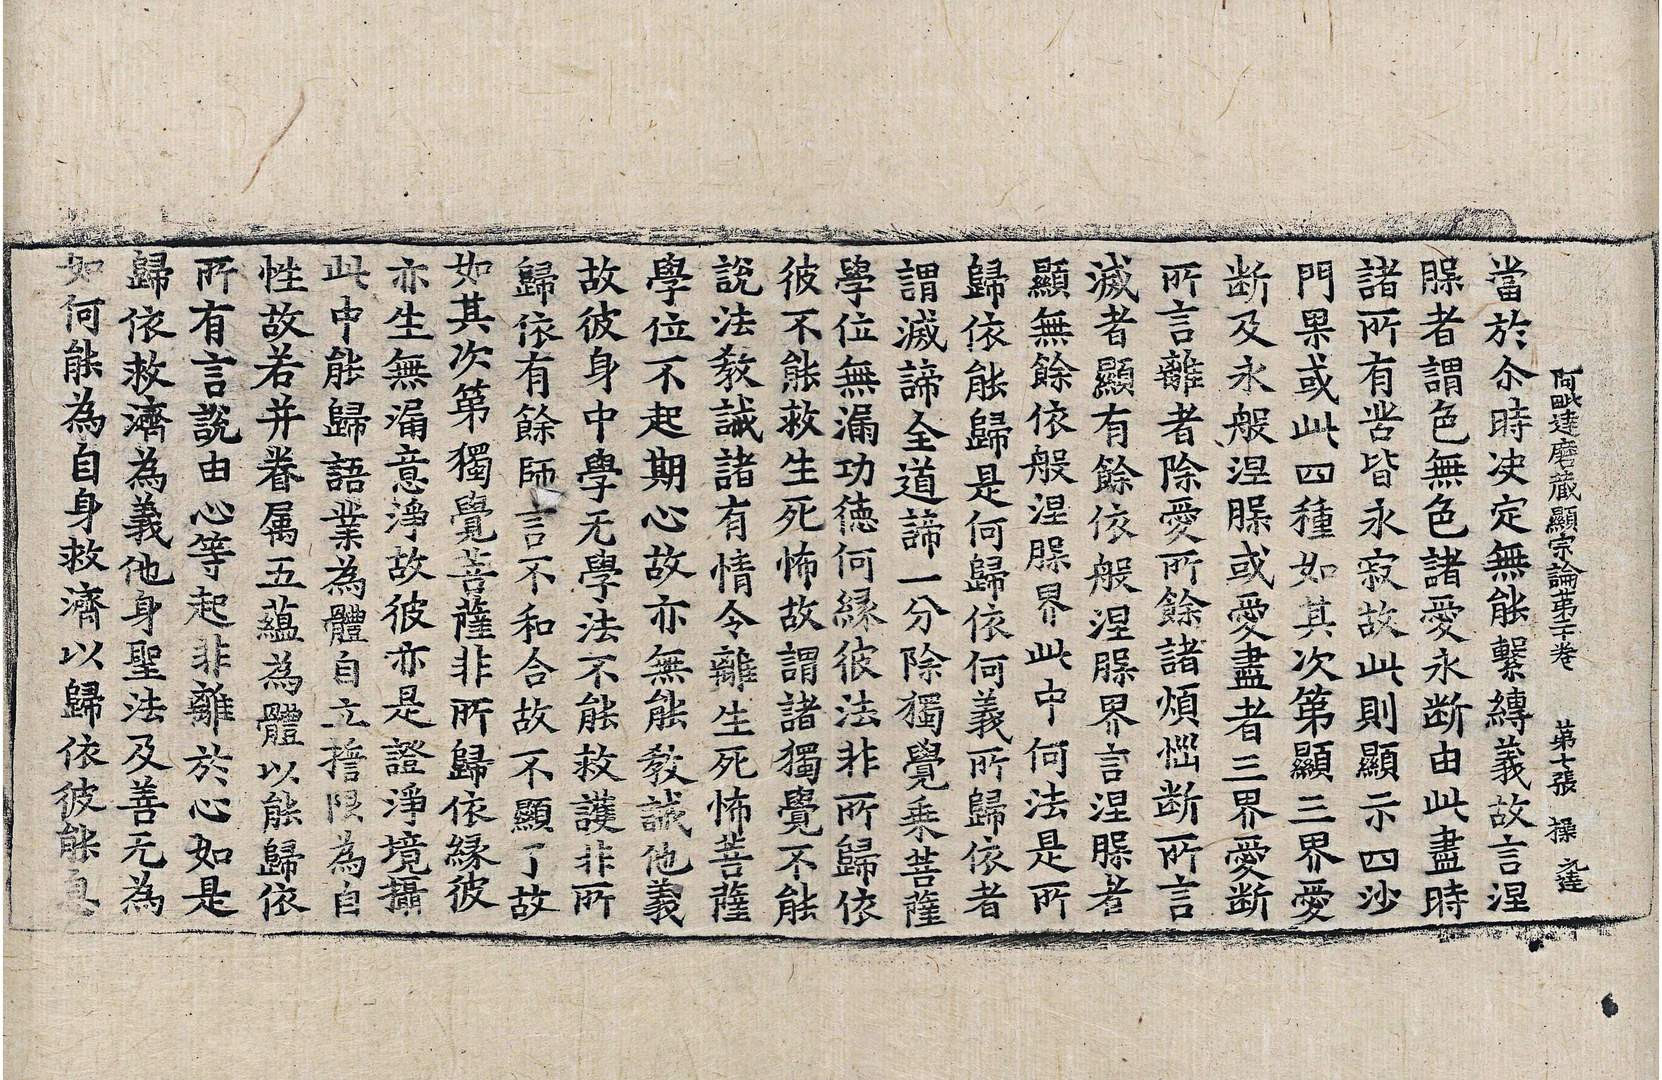 阿毗達磨藏顯宗論第二十卷 第七張 操
當於尒時决定無能繫縛義故言涅
槃者謂色無色諸愛永断由此盡時
諸所有苦皆永寂故此則顯示四沙
門果或此四種如其次第顯三界愛
断及永般涅槃或愛盡者三界愛断
所言離者除愛所餘諸煩惱断所言
滅者顯有餘依般涅槃界言涅槃者
顯無餘依般涅槃界此中何法是所
歸依能歸是何歸依何義所歸依者
謂滅諦全道諦一分除獨覺乘菩薩
學位無漏功德何緣彼法非所歸依
彼不能救生死怖故謂諸獨覺不能
說法教誡諸有情令離生死怖菩薩
學位不起期心故亦無能教誡他義
故彼身中學无學法不能救護非所
歸依有餘師言不和合故不顯了故
如其次第獨覺菩薩非所歸依緣彼
亦生無漏意淨故彼亦是證淨境攝
此中能歸語業為體自立擔限為自
性故若并眷属五蘊為體以能歸依
所有言說由心等起非離於心如是
歸依救濟為義他身聖法及善无為
如何能為自身救濟以歸依彼能息